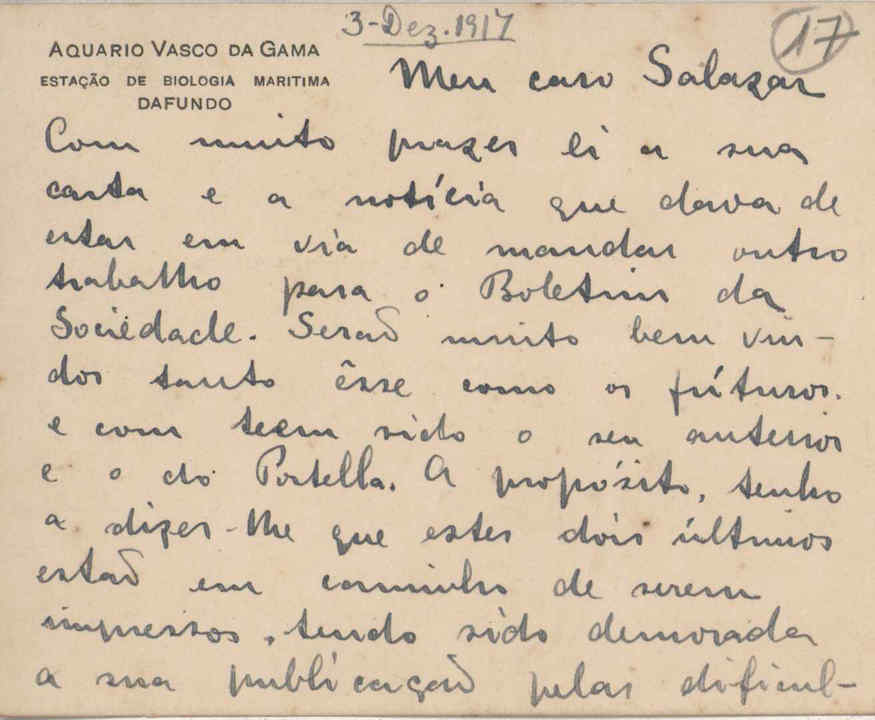 3-Dez. 1917
17
AQUARIO VASCO DA GAMA
ESTAÇÃO DE BIOLOGIA MARITIMA
DAFUNDO
Meu caro Salazar
Com muito prazer li a sua
carta e a notícia que dava de
estar em via de mandar outro
trabalho para o Boletim da
Sociedade. Seraõ muito bem vin-
dos tanto êsse como os fúturos.
e com teem sido o seu anterior
e o do Portella. A propósito, tenho
a dizer-lhe que estes dois últimos
estaõ em caminho de serem
impressos, tendo sido demorada
a sua publicaçaõ pelas dificul-